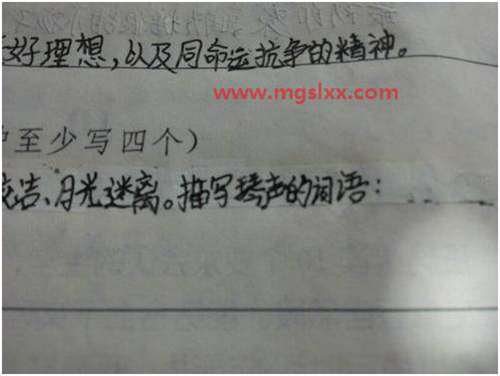 好理想，以及同命运抗争的精神。
www.mgslxx.com
中至少写四个）
皎洁、月光迷离。描写琴声的词语：